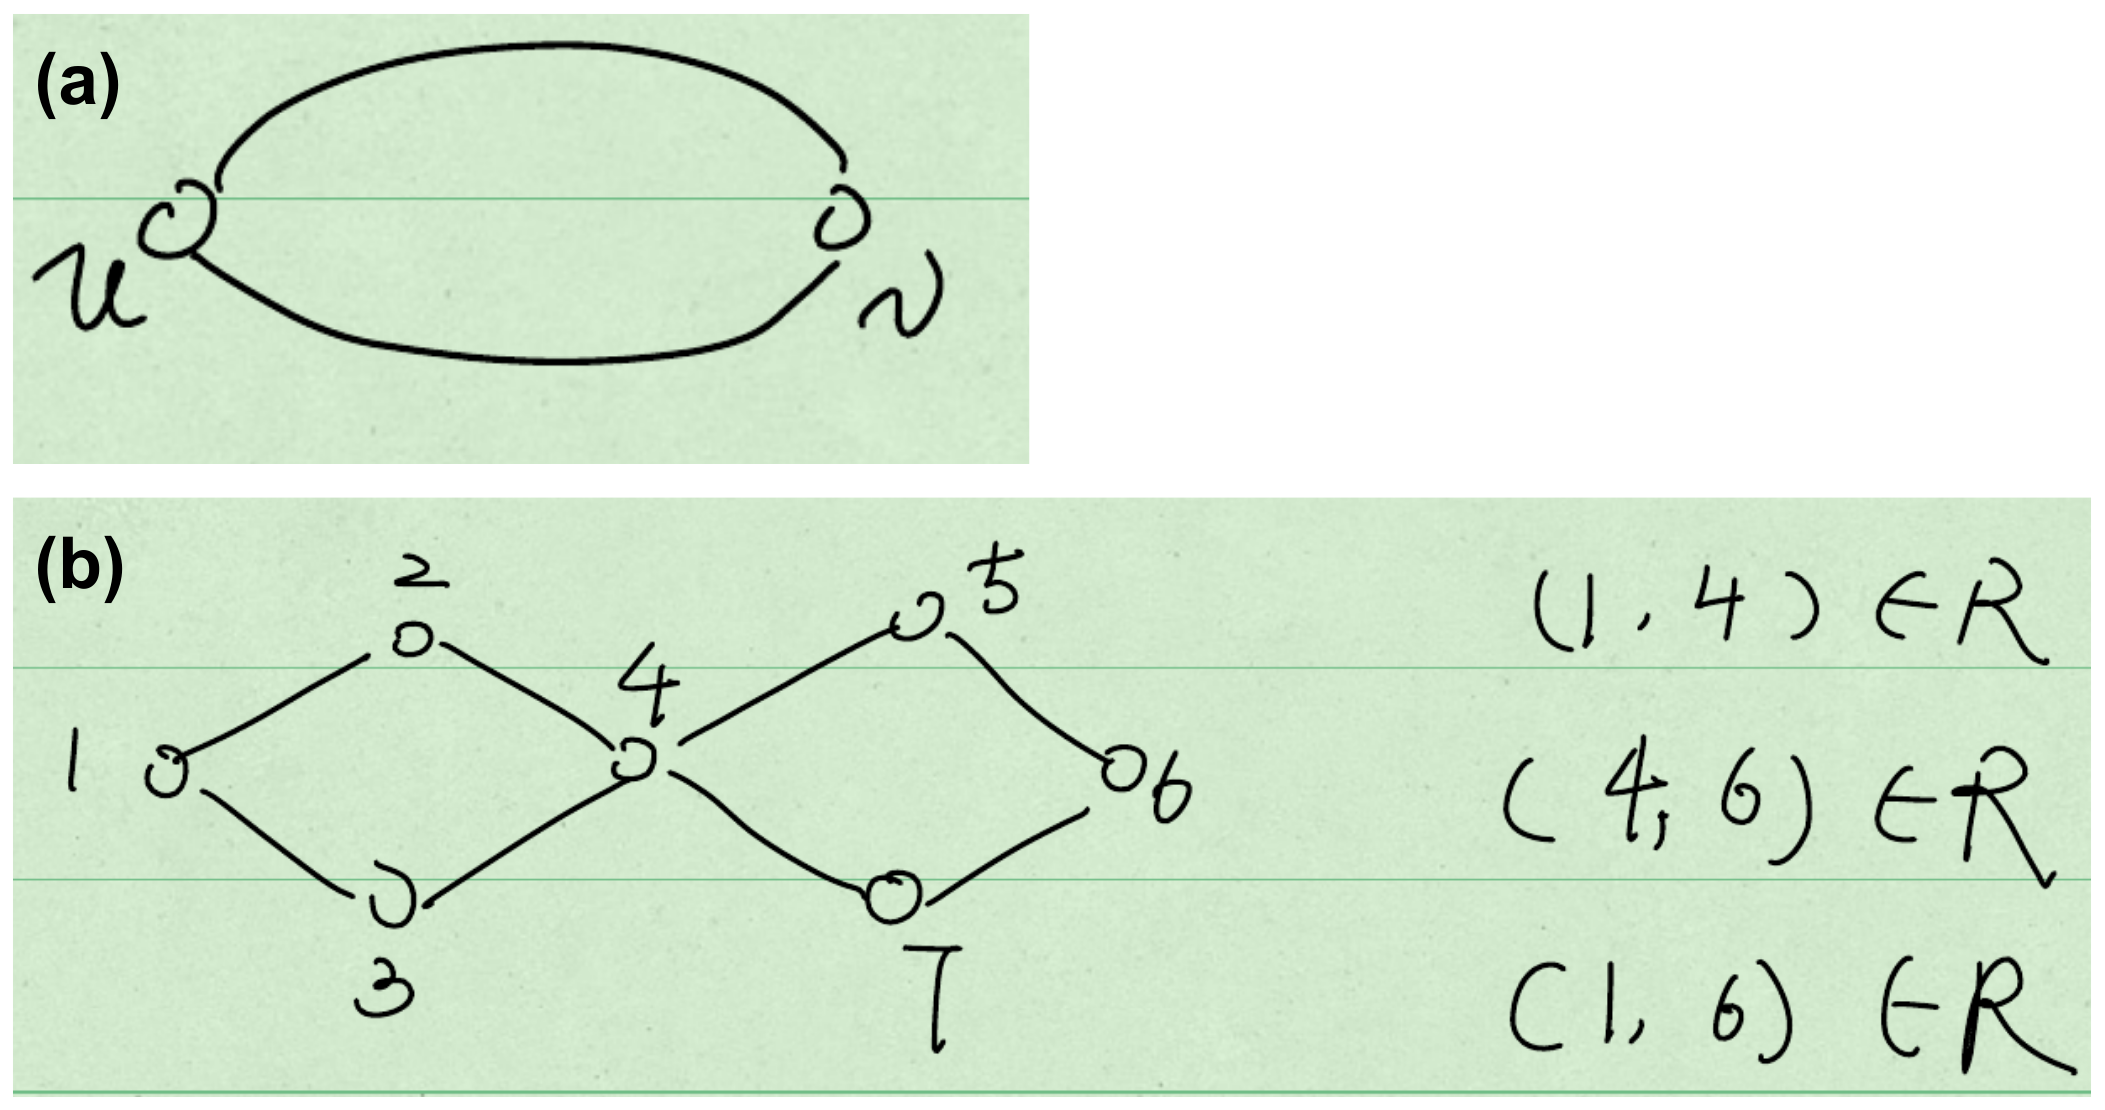 (a)
u
v
(b)
2
5
4
1
6
3
7
(1, 4) ∈ R
(4, 6) ∈ R
(1, 6) ∈ R